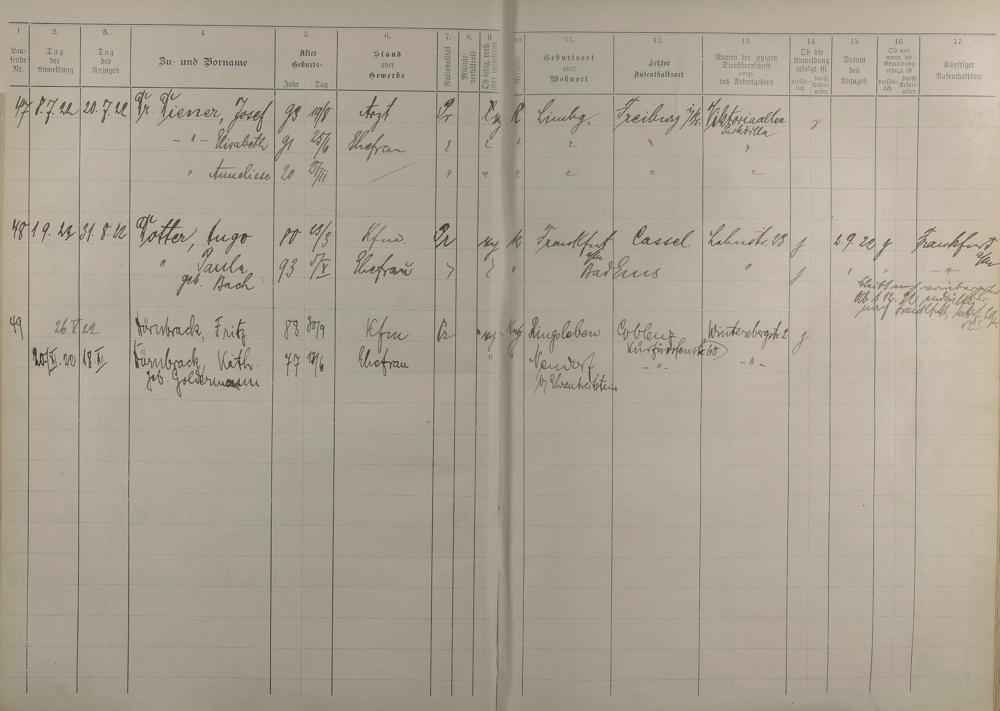 1 2. 3. 4 5. 6. 7. 8. 9 10. 11. 12. 13. 14. 15. 16. 17.
Laufende Nr. Tag der Anmeldung Tag des Anzuges Zu- und Vorname Alter Geburts- Jahr Tag Stand oder Gewerbe Nationalität Militärverhältnis Ob ledig, verh. oder verwitwet Religion Geburtsort oder Wohnort Letzter Aufenthaltsort Namen der jetzigen Dienstherrschaft resp. des Arbeitgebers Ob die Anmeldung erfolgt ist persönlich durch Arbeitgeber Datum des Abzuges Ob und wann die Abmeldung erfolgt ist persönlich durch Arbeitgeber Künftiger Aufenthaltsort
47 8.7.22 20.7.22 Dr. Diener, Josef 93 19/8 Arzt Pr K Limbg. Freiburg i/Br. Viktoriaallee
Parkvilla
- " - Elisabeth 91 25/6 Ehefrau "
" Anneliese 20 " " "
48 1.9.22 31.8.22 Dotter, Hugo 00 23/3 Kfm. Pr K Frankfurt a/m Cassel Lahnstr. 23 j 2.9.22 j Frankfurt a/m
" Paula 93 Ehefrau " Bad Ems " j " " - " -
geb. Bach
49 26.V 22 Dürnbrack, Fritz 88 30/9 Kfm Pr Ringleben Coblenz Wintersbergstr. 2 j
Kurfürstenstr. 60
20/VI.22 18.VI. Dürnbrack, Käth. 77 18/6 Ehefrau " " Neudorf - " - - " -
geb. Goldermann b/ Ehrenbreitstein